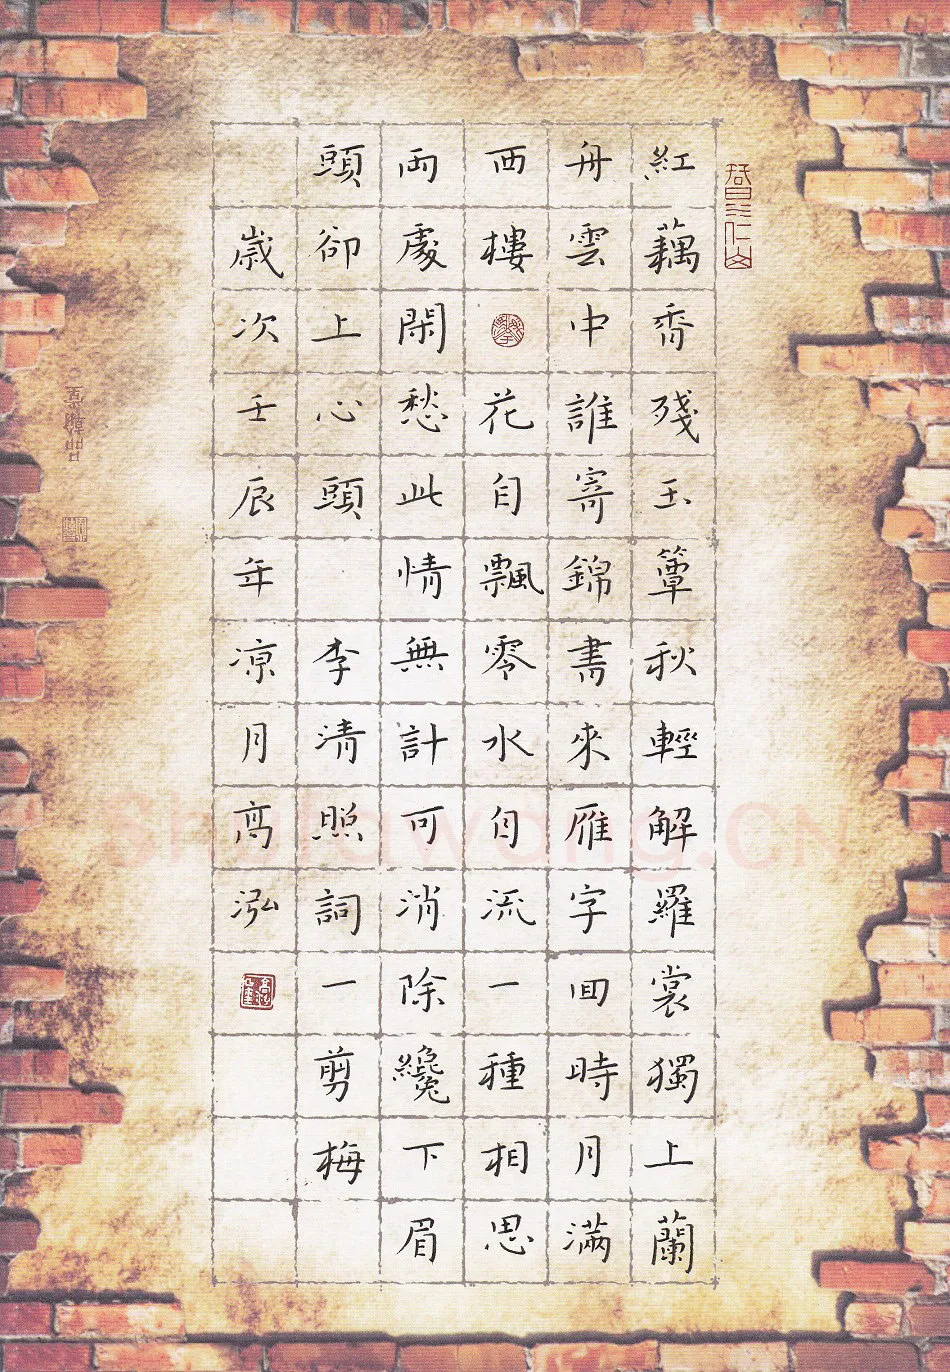 紅藕香殘玉簟秋輕解羅裳獨上蘭
舟雲中誰寄錦書來雁字回時月滿
西樓花自飄零水自流一種相思
兩處閑愁此情無計可消除纔下眉
頭卻上心頭李清照詞一剪梅
歲次壬辰年涼月高泓
Shufawang.CN